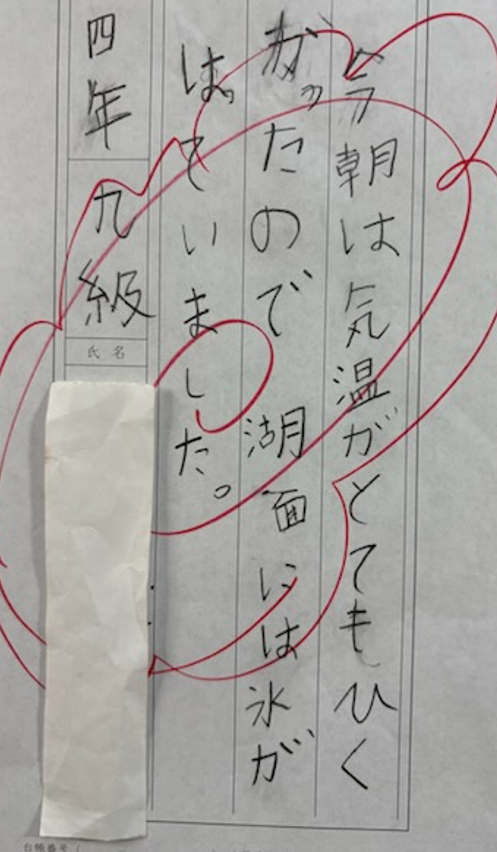 今朝は気温がとてもひく
かったので湖面には氷が
はっていました。
四年 九級
氏名